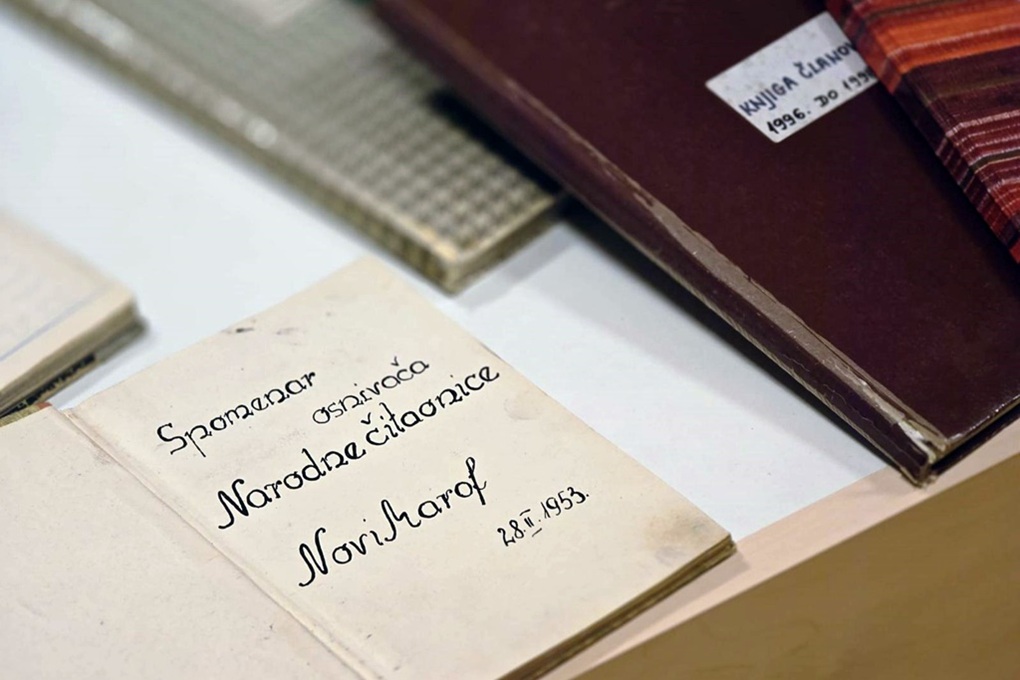 Spomenar
osnivača
Narodne čitaonice
Novi Marof
28.II.1953.
KNJIGA ČLANOV
1996. DO 199